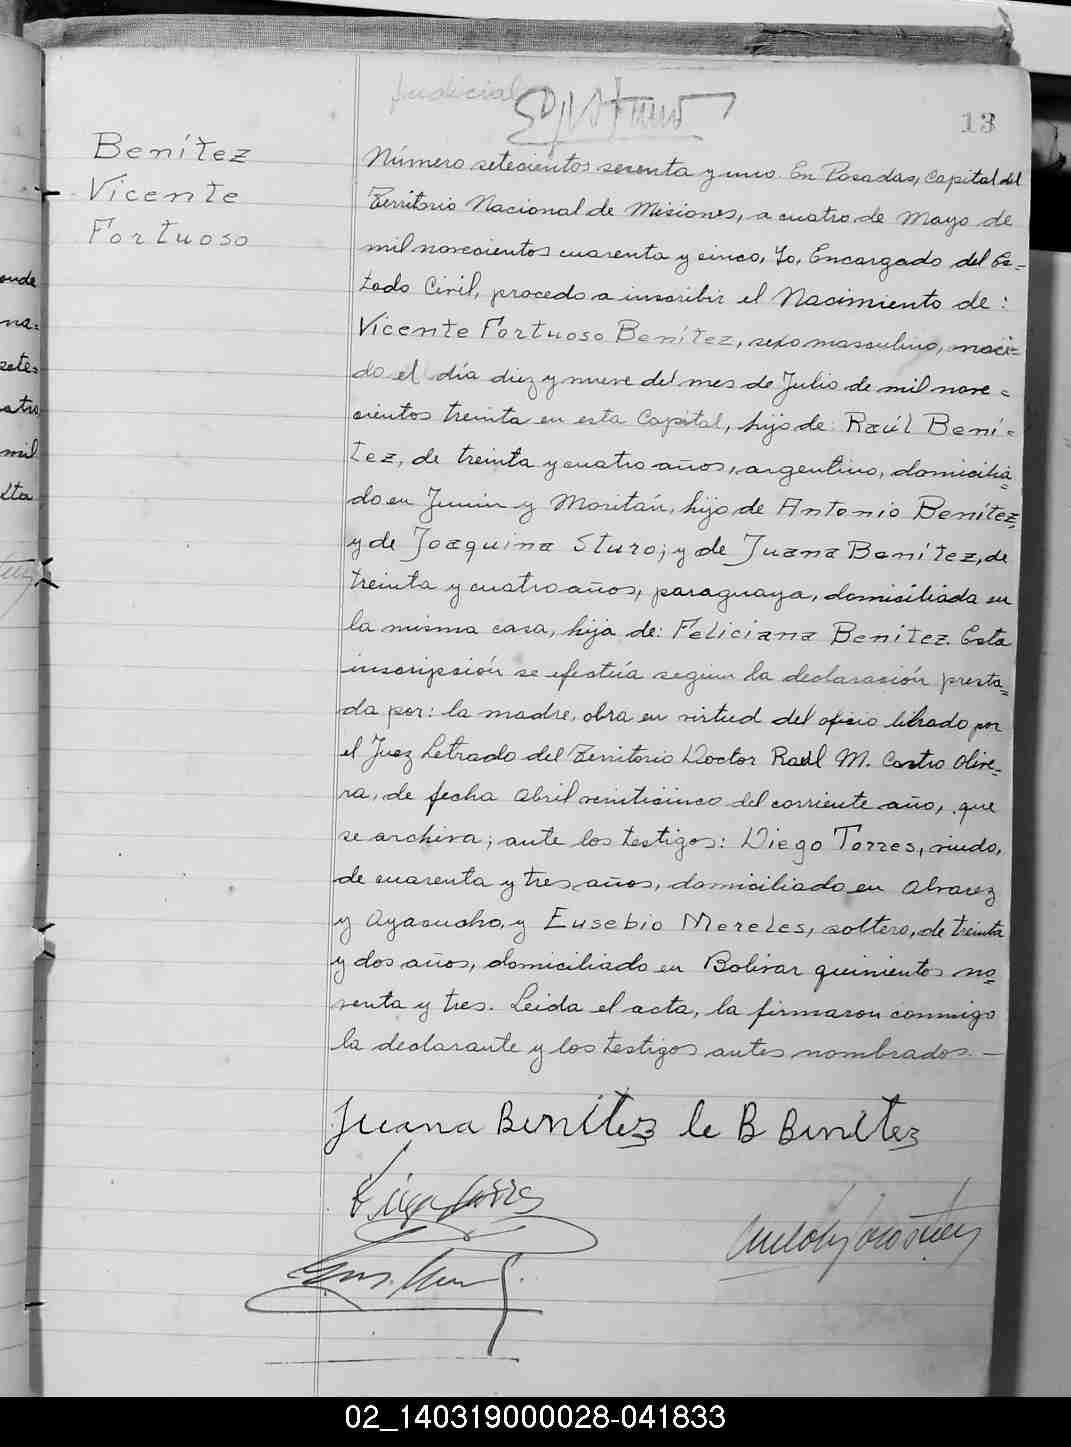 Judicial
13
Benítez
Vicente
Fortuoso
Número setecientos sesenta y uno. En Posadas, Capital del
Territorio Nacional de Misiones, a cuatro de Mayo de
mil novecientos cuarenta y cinco, Yo, Encargado del Es=
tado Civil, procedo a inscribir el Nacimiento de:
Vicente Fortuoso Benítez, sexo masculino, naci=
do el día diez y nueve del mes de Julio de mil nove=
cientos treinta en esta Capital, hijo de: Raúl Bení=
tez, de treinta y cuatro años, argentino, domicilia=
do en Junin y Moritán, hijo de Antonio Benítez,
y de Joaquina Sturo; y de Juana Benítez, de
treinta y cuatro años, paraguaya, domiciliada en
la misma casa, hija de: Feliciana Benítez. Esta
inscripsión se efectúa segun la declaración presta=
da por: la madre, obra en virtud del oficio librado por
el Juez Letrado del Territorio Doctor Raúl M. Castro Olive=
ra, de fecha abril veinticinco del corriente año, que
se archiva; ante los testigos: Diego Torres, viudo,
de cuarenta y tres años, domiciliado en Alvarez
y Ayacucho, y Eusebio Mereles, soltero, de treinta
y dos años, domiciliado en Bolivar quinientos no=
venta y tres. Leida el acta, la firmaron conmigo
la declarante y los testigos antes nombrados. —
Juana Benítez de B Benítez
onde
na=
sete=
atro
mil
ita
02_140319000028-041833